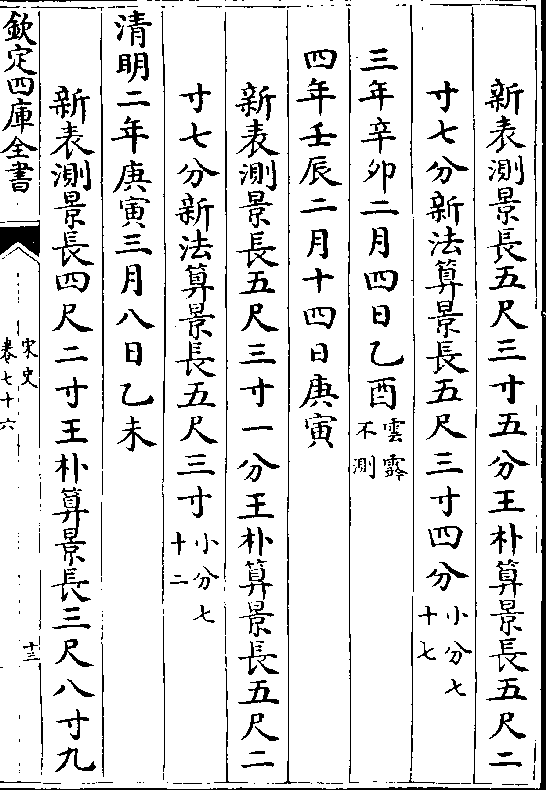 新表測景長五尺三寸五分王朴算景長五尺二
寸七分新法算景長五尺三寸四分小分七十七
三年辛卯二月四日乙酉雲霧不測
四年壬辰二月十四日庚寅
新表測景長五尺三寸一分王朴算景長五尺二
寸七分新法算景長五尺三寸小分七十二
清明二年庚寅三月八日乙未
新表測景長四尺二寸王朴算景長三尺八寸九
欽定四庫全書
宋史
卷七十六
十三